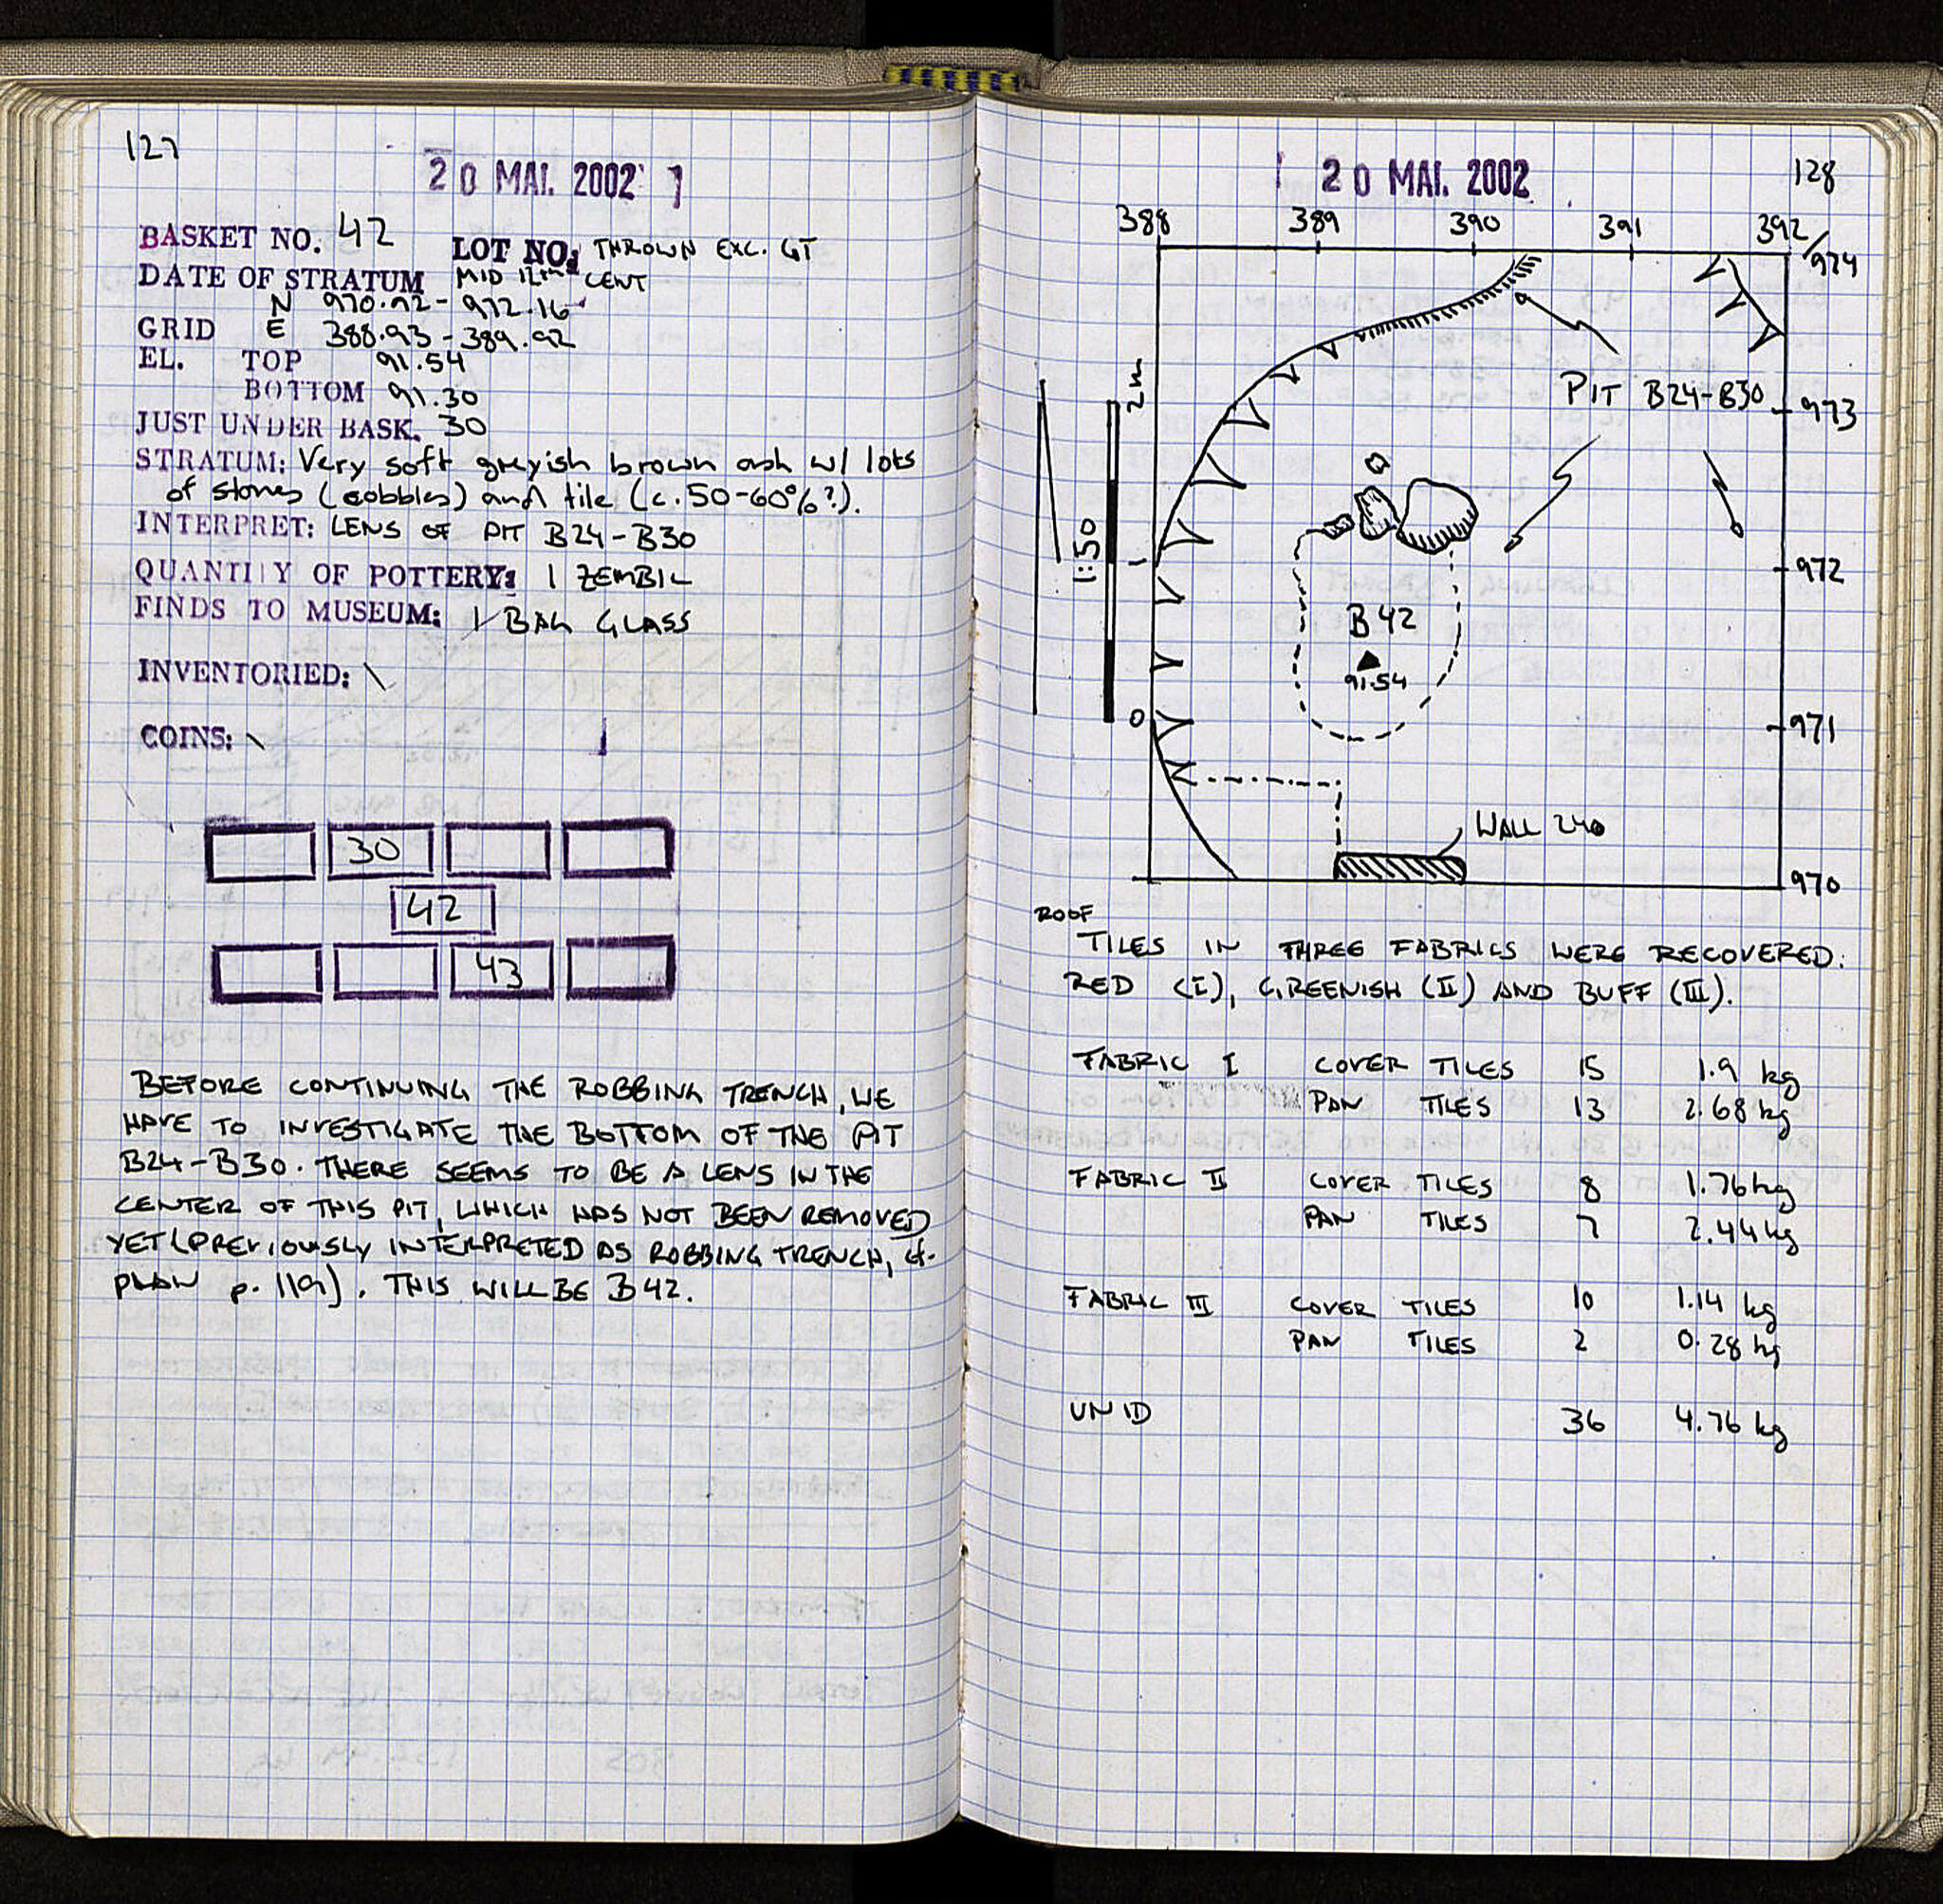 127
20 MAI. 2002
BASKET NO. 42 LOT NO: THROWN EXC. GT
DATE OF STRATUM MID 12TH CENT
N 970.92-972.16
GRID E 388.93-389.92
EL. TOP 91.54
BOTTOM 91.30
JUST UNDER BASK. 30
STRATUM: Very soft greyish brown ash w/ lots
of stones (cobbles) and tile (c.50-60%?).
INTERPRET: LENS OF PIT B24-B30
QUANTITY OF POTTERY: 1 ZEMBIL
FINDS TO MUSEUM: 1 BAG GLASS
INVENTORIED: \
COINS: \
30
42
43
BEFORE CONTINUING THE ROBBING TRENCH, WE
HAVE TO INVESTIGATE THE BOTTOM OF THE PIT
B24-B30. THERE SEEMS TO BE A LENS IN THE
CENTER OF THIS PIT, WHICH HAS NOT BEEN REMOVED
YET (PREVIOUSLY INTERPRETED AS ROBBING TRENCH, cf.
PLAN p. 119). THIS WILL BE B42.
20 MAI. 2002
128
388 389 390 391 392/974
PIT B24-B30
973
2m
1:50
1
972
B42
91.54
0
971
WALL 240
970
ROOF
TILES IN THREE FABRICS WERE RECOVERED:
RED (I), GREENISH (II) AND BUFF (III).
FABRIC I COVER TILES 15 1.9 kg
PAN TILES 13 2.68 kg
FABRIC II COVER TILES 8 1.76 kg
PAN TILES 7 2.44 kg
FABRIC III COVER TILES 10 1.14 kg
PAN TILES 2 0.28 kg
UNID 36 4.76 kg